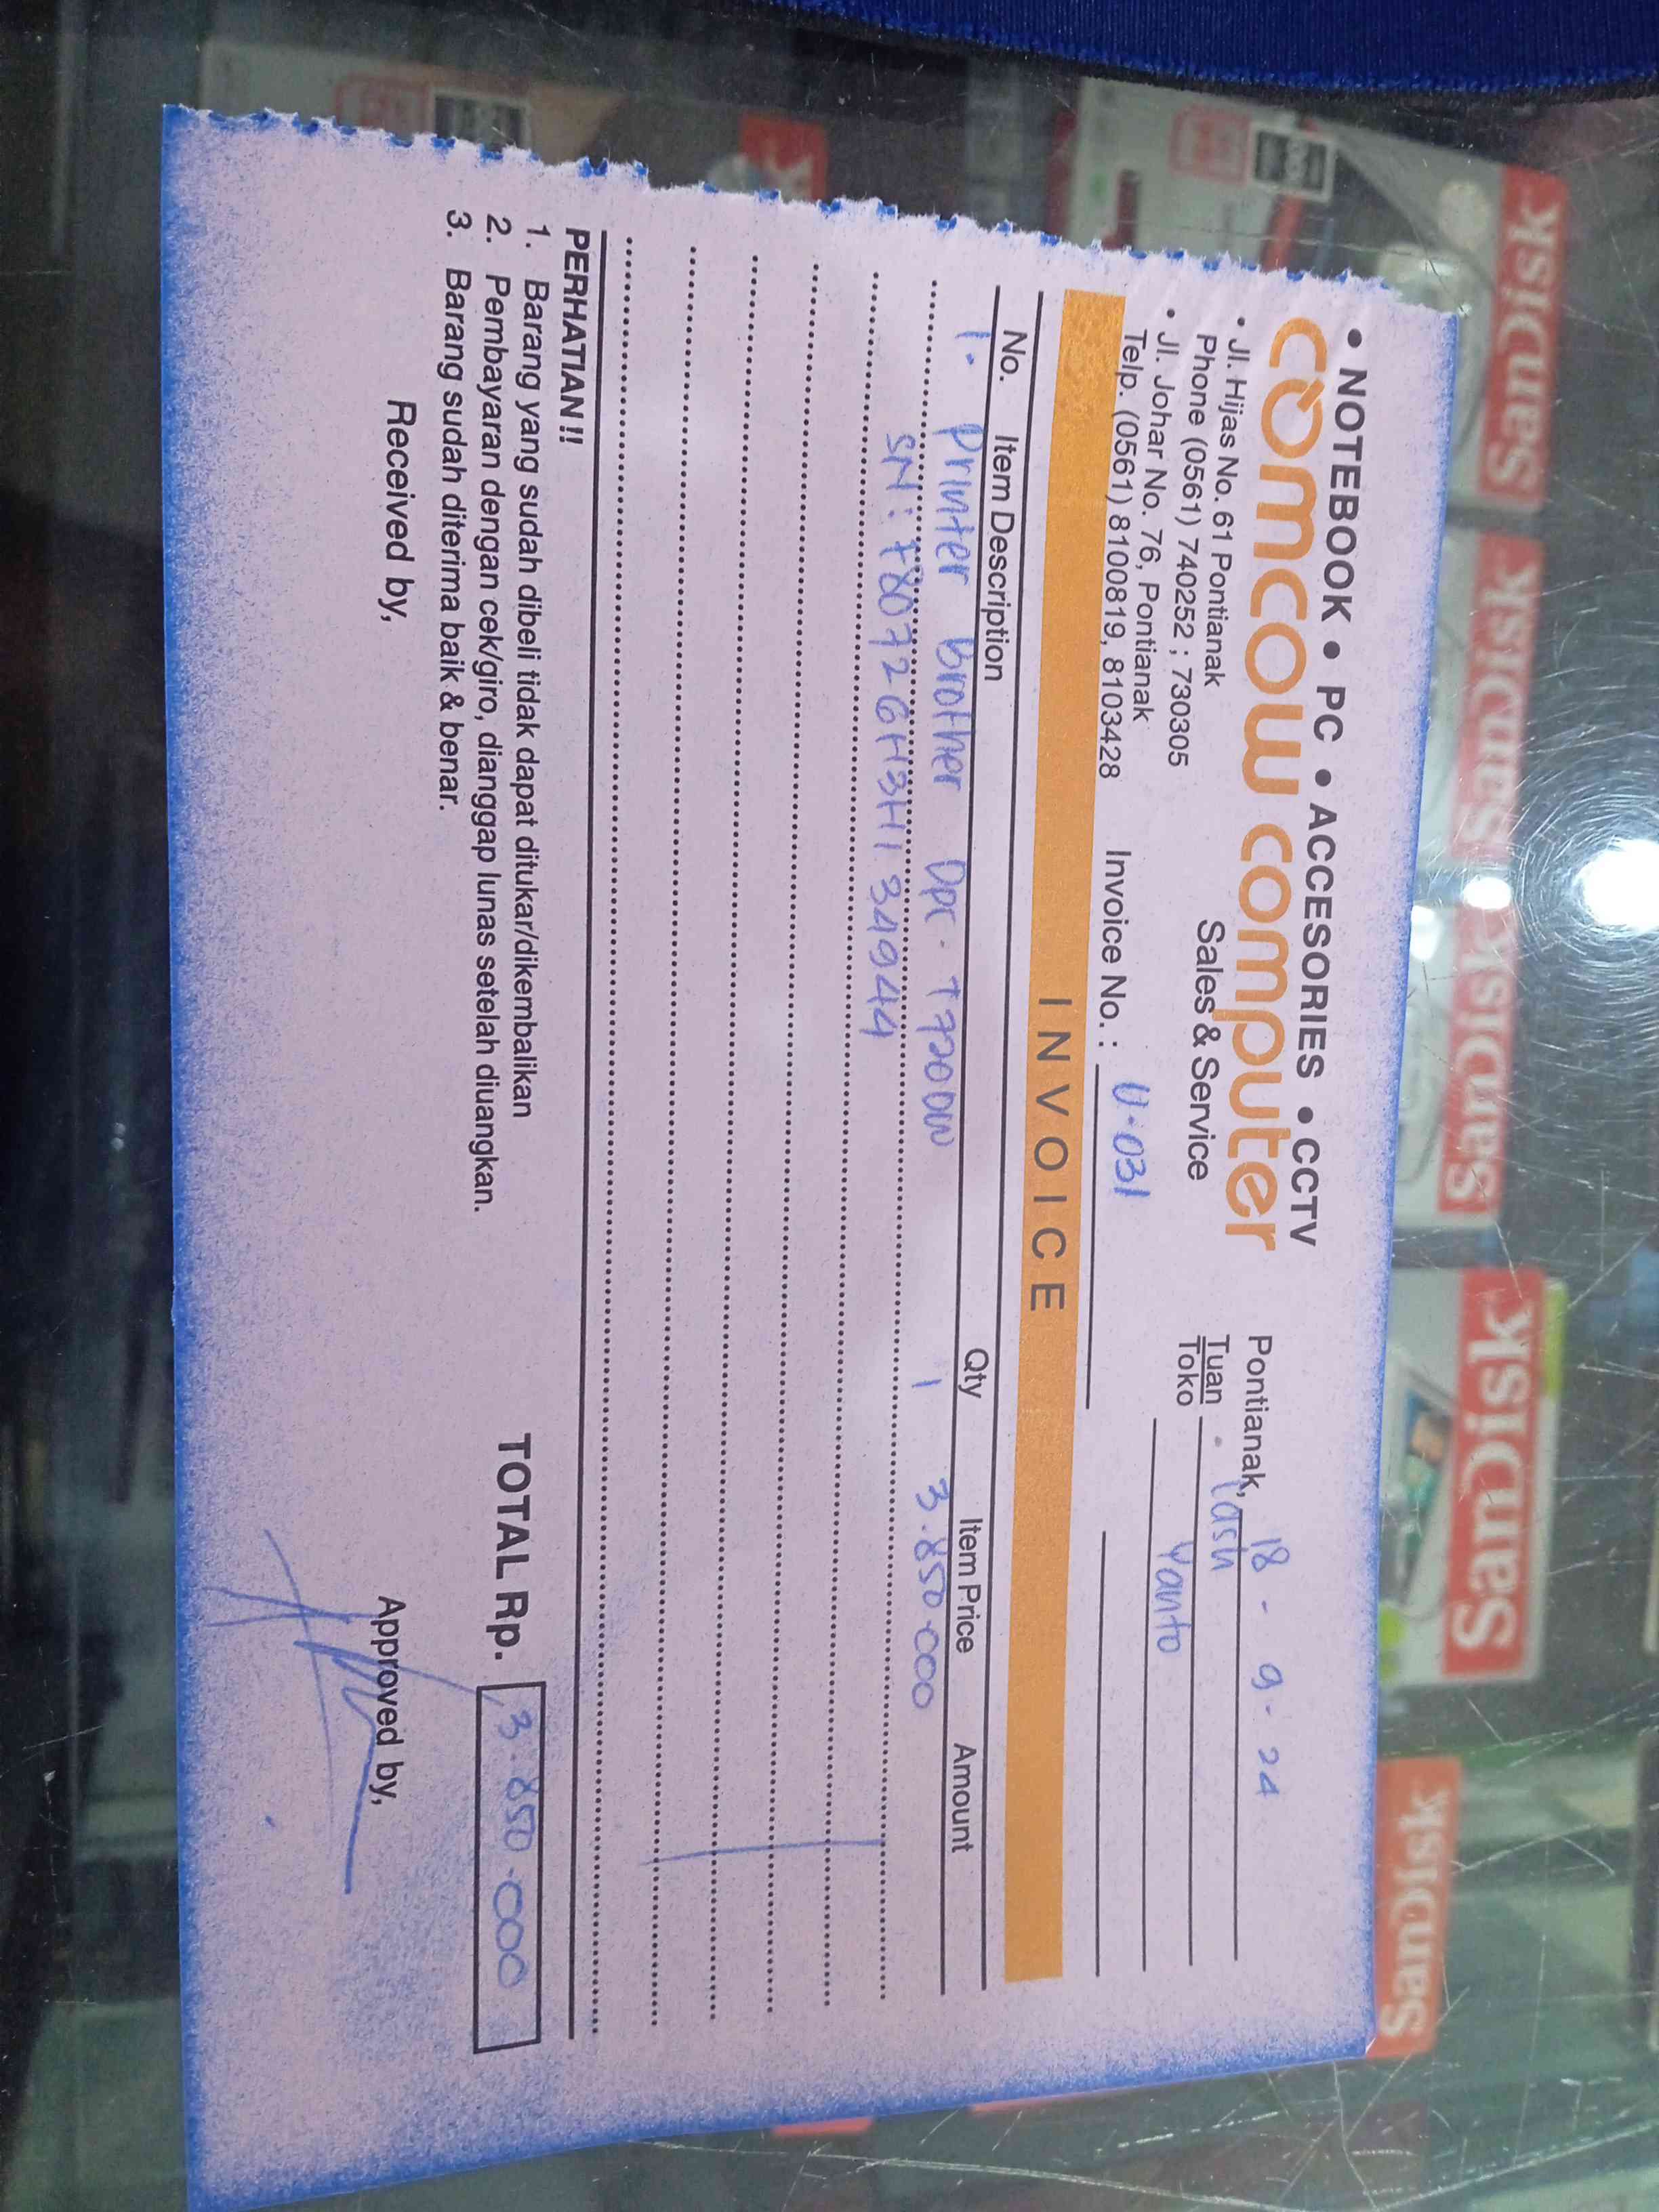 • NOTEBOOK • PC • ACCESSORIES • CCTV
comcow computer
Sales & Service
• Jl. Hijas No. 61 Pontianak
Phone (0561) 740252 ; 730305
• Jl. Johar No. 76, Pontianak
Telp. (0561) 8100819, 8103428
Invoice No. : U-031
Pontianak, 18 - 9 - 24
Tuan Cash
Toko Yanto
INVOICE
No. Item Description Qty Item Price Amount
1. Printer Brother Dpc. T720DW 1 3.850.000
SN : 780726H3H134944
PERHATIAN !!
1. Barang yang sudah dibeli tidak dapat ditukar/dikembalikan
2. Pembayaran dengan cek/giro, dianggap lunas setelah diuangkan.
3. Barang sudah diterima baik & benar.
TOTAL Rp. 3.850.000
Received by,
Approved by,
SanDisk
SanDisk
SanDisk
SanDisk
SanDisk